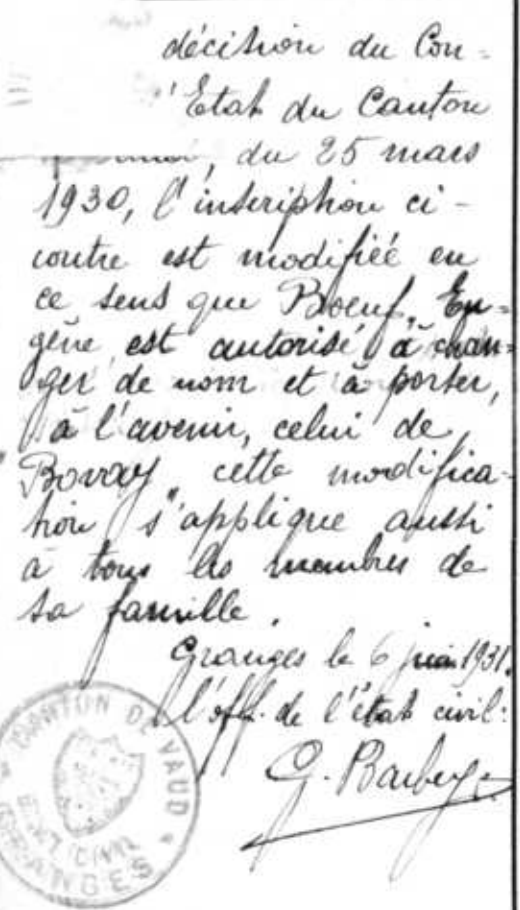 décision du Con-
'Etat du Canton
du 25 mars
1930, l'inscription ci-
contre est modifiée en
ce sens que Boeuf, Eu-
gène est autorisé à chan-
ger de nom et à porter,
à l'avenir, celui de
"Bovay" cette modifica-
tion s'applique aussi
à tous les membres de
sa famille.
Granges le 6 juin 1931.
l'off. de l'état civil:
G. Barbey
CANTON DE VAUD
ETAT CIVIL
GRANGES